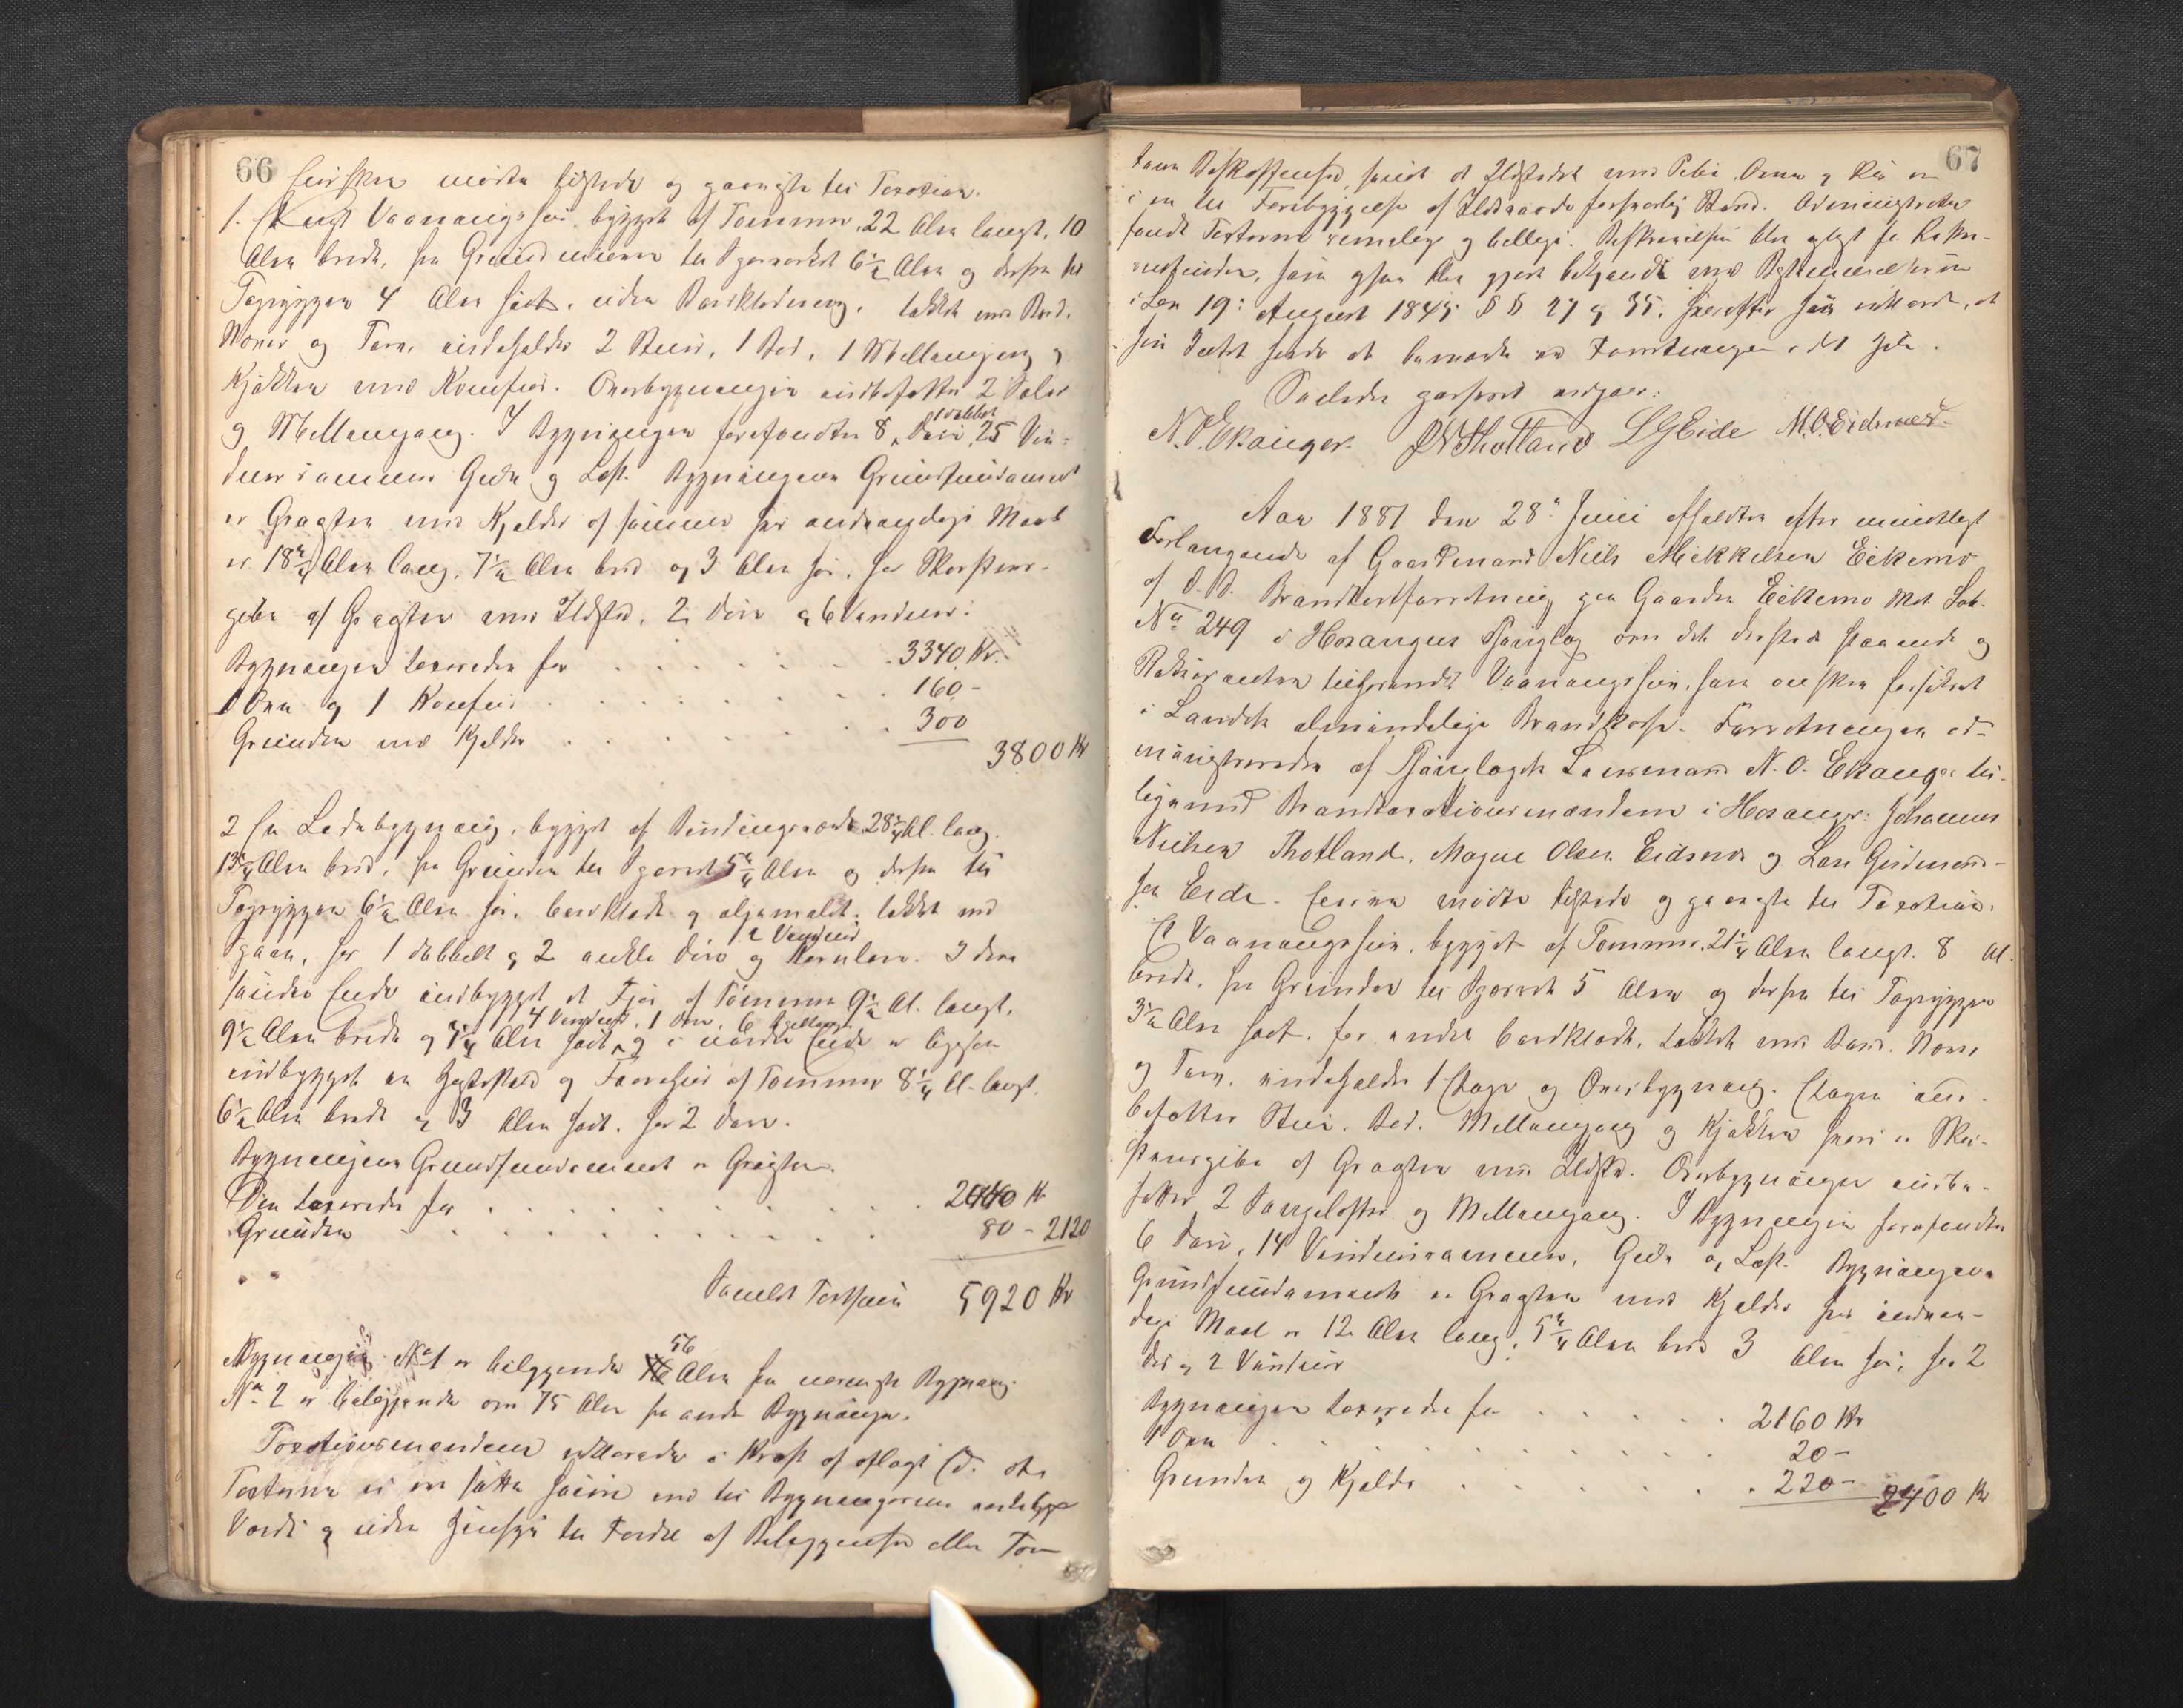 66
mødte tilstede og gaves til Taxation.
1. Et Vaaningshus, bygget af Tømmer, 22 Alen langt, 10
Alen bredt, fra Grundmuren til 6½ Alen og derfra til
Tagryggen 4 Alen høit, uden Bordklædning, tækket med Bord,
Næver og Torv, indeholder 2 Stuer, 1 Bod, 1 Mellemgang og
Kjøkken med Komfur. Overbygningen indbefatter 2 Sale
og Mellemgang. I Bygningen forefindes 8 Døre, 25 Vin-
duesrammer Gulv og Loft. Bygningens Grundfundament
er Graasten med Kjelder af samme har indvendige Maal
er 18 Alen lang, 7½ Alen bred og 3 Alen høi, har Skorstens-
pibe af Graasten med Ildsted, 2 Døre og 6 Vinduer.
Bygningen taxeredes for . . . . . . . 3340 Kr.
1 Ovn og 1 Komfur . . . . . . . 160 -
Grunden med Kjelder . . . . . . . 300
3800 Kr
2 En Ladebygning, bygget af Bindingsværk 28 Al. lang,
Alen bred, fra Grunden til Alen og derfra til
Tagryggen 6½ Alen høi, bordklædt og oljemalet, tækket med
har 1 dobbelt og 2 enkle Døre og
2 Vinduer
I dens
søndre Ende indbygget et Fjøs af Tømmer 9½ Al. langt,
4 Vinduer, 1 Dør, 6
9½ Alen bredt og Alen høit, og i nordre Ende er ligesaa
indbygget en Hestestald og Faarehus af Tømmer 8¼ Al. langt,
6½ Alen bredt og 3 Alen høit, har 2 Døre.
Bygningens Grundfundament er Graasten.
Den taxeredes for . . . . . . . 2040 Kr
Grunden . . . . . . . 80 - 2120
Samlet Taxtsum 5920 Kr
Bygningen No 1 er beliggende 56 Alen fra nærmeste Bygning
No 2 er beliggende om 75 Alen fra andre Bygninger.
Taxationsmændene erklærede i Kraft af aflagt Ed, at
Taxterne er ansatte med til Bygningernes
Værdi og uden Hensyn til Fordel af Beliggenhed eller Tom

67
Tomtens Beskaffenhed, samt at Ildstedet med Pibe, Ovne og Rør er
i en til Forebyggelse af Ildsvaade forsvarlig Stand. Administrator
fandt Taxterne rimelige og billige. Beskrivelsen blev oplæst for Rekvi-
renten, som ogsaa blev gjort bekjendt med Bestemmelserne
i Lov 19: August 1845 § § 27 og 35, hvorefter han erklærede, at
han Intet havde at bemærke ved Forretningen i det Hele.
Saaledes passeret udgaar:
N. O. Ekanger. J N Thotland L G Eide M. O. Eidsnes
Aar 1881 den 28: Juni afholdtes efter mundtligt
Forlangende af Gaardmand Niels Mikkelsen Eikemo
af D. D. Brandtaxtforretning paa Gaarden Eikemo Mat. Løb.
No 249 i Hosangers Thinglag om det dersteds staaende og
Rekvirenten tilhørende Vaaningshus, som ønskes forsikret
i Landets almindelige Brandkasse. Forretningen ad-
ministreredes af Thinglagets Lensmand N. O. Ekanger til-
ligemed Brandtaxationsmændene i Hosanger: Johannes
Nielsen Thotland, Magne Olsen Eidsnes og Lars Gudmund-
sen Eide. Eieren mødte tilstede og gaves til Taxation.
Et Vaaningshus, bygget af Tømmer, 21¼ Alen langt, 8 Al.
bredt, fra Grunden til 5 Alen og derfra til Tagryggen
3½ Alen høit, for endel bordklædt, tækket med Bord, Næver
og Torv, indeholder 1 Etage og Overbygning. Etagen ind-
befatter Stue, Bod, Mellemgang og Kjøkken hvori er Skor-
stenspibe af Graasten med Ildsted. Overbygningen indbe-
fatter 2 Sengelofter og Mellemgang. I Bygningen forefindes
6 Døre, 14 Vinduesrammer, Gulv og Loft. Bygningens
Grundfundament er Graasten med Kjelder har indven-
dige Maal er 12 Alen lang, Alen bred 3 Alen høi, har 2
Døre og 2 Vinduer
Bygningen taxeredes for . . . . . 2160 Kr
1 Ovn . . . . . . . 20 -
Grunden og Kjelder . . . . . . 220 - 2400 Kr